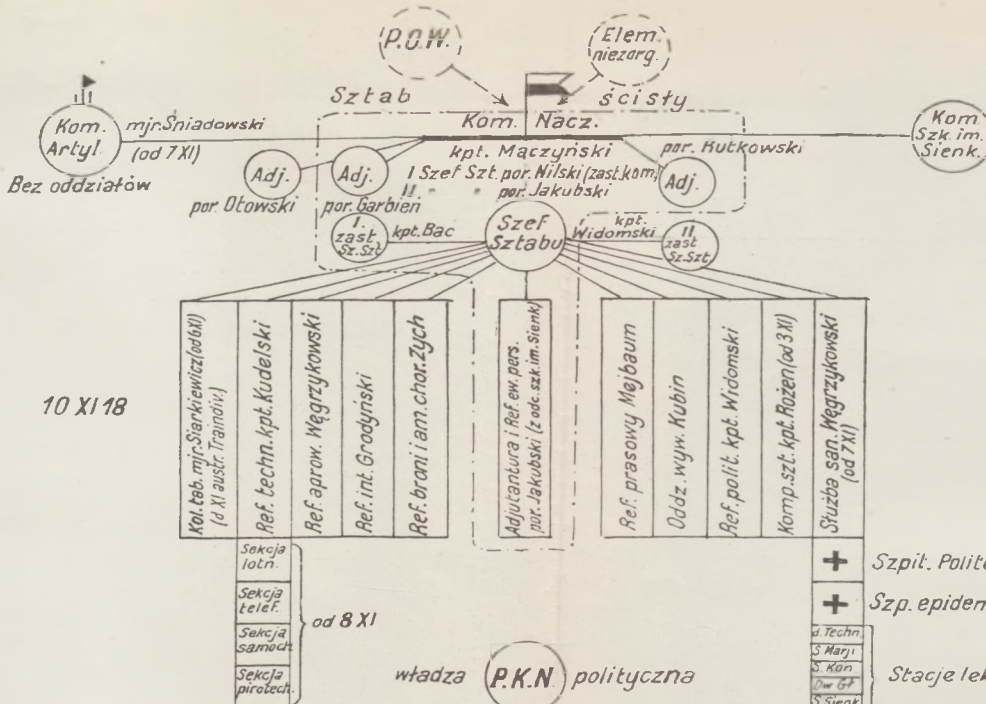 P.O.W.
Elem.
niezorg.
Sztab
ścisły
Kom. Nacz.
Kom.
Artyl.
mjr. Śniadowski
(od 7 XI)
Bez oddziałów
Kom
Szk. im.
Sienk.
kpt. Mączyński
por. Kutkowski
I Szef Szt. por. Nilski (zast. kom.)
II " " por. Jakubski
Adj.
por. Otowski
Adj.
por. Garbień
Adj.
I.
zast.
Sz.Szt
kpt. Bac
Szef
Sztabu
kpt.
Widomski
II
zast
Sz.Szt.
10 XI 18
Kol. tab. mjr. Siarkiewicz (od 6 XI)
(d XI austr. Traindiv.)
Ref. techn. kpt. Kudelski
Ref. aprow. Węgrzykowski
Ref. int. Grodyński
Ref. broni i am. chor. Zych
Adjutantura i Ref. ew. pers.
por. Jakubski (z odc. szk. im. Sienk)
Ref. prasowy Mejbaum
Oddz. wyw. Kubin
Ref. polit. kpt. Widomski
Komp. szt. kpt. Rożen (od 3 XI)
Służba san. Węgrzykowski
(od 7 XI)
Sekcja
lotn.
Sekcja
telef.
Sekcja
samoch.
Sekcja
pirotech.
od 8 XI
władza P.K.N polityczna
Szpit. Polite
Szp. epidem
d. Techn.
S Marji
S. Kon
Dw Gł
S Sienk
Stacje lek